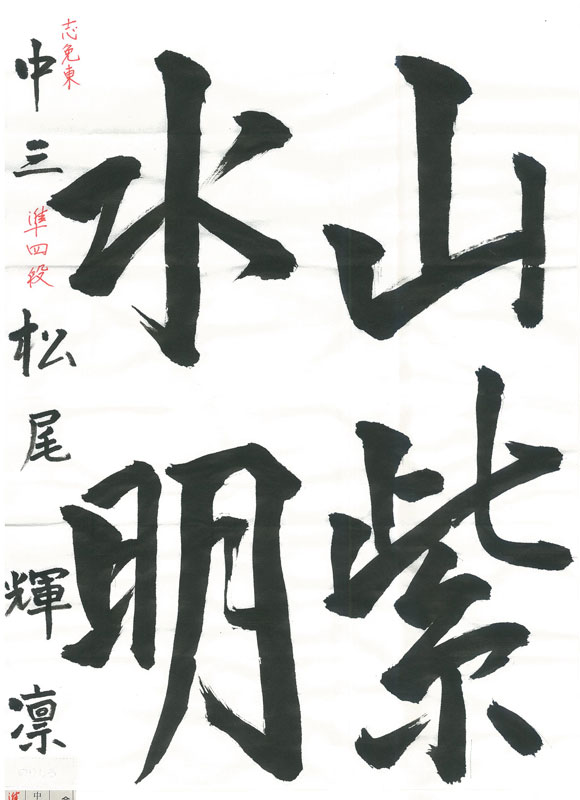 山紫
水明
志免東
中三 準四段 松尾輝凛